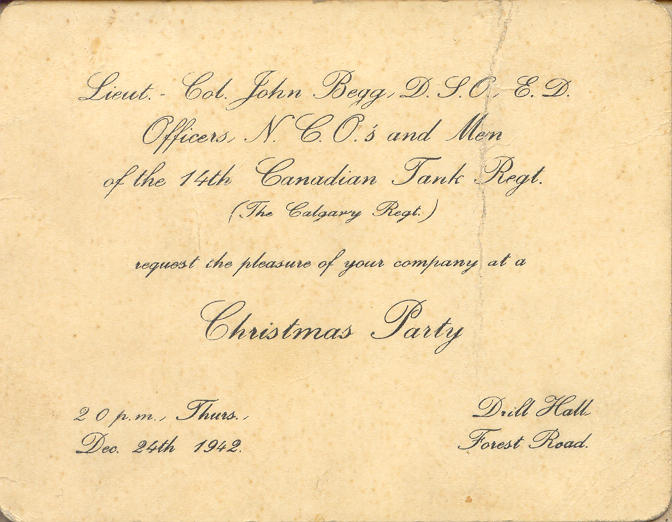 Lieut. - Col. John Begg, D. S. O., E. D.
Officers, N. C. O.'s and Men
of the 14th Canadian Tank Regt.
(The Calgary Regt.)
request the pleasure of your company at a
Christmas Party
2 0 p.m., Thurs.,
Dec. 24th 1942.
Drill Hall
Forest Road.